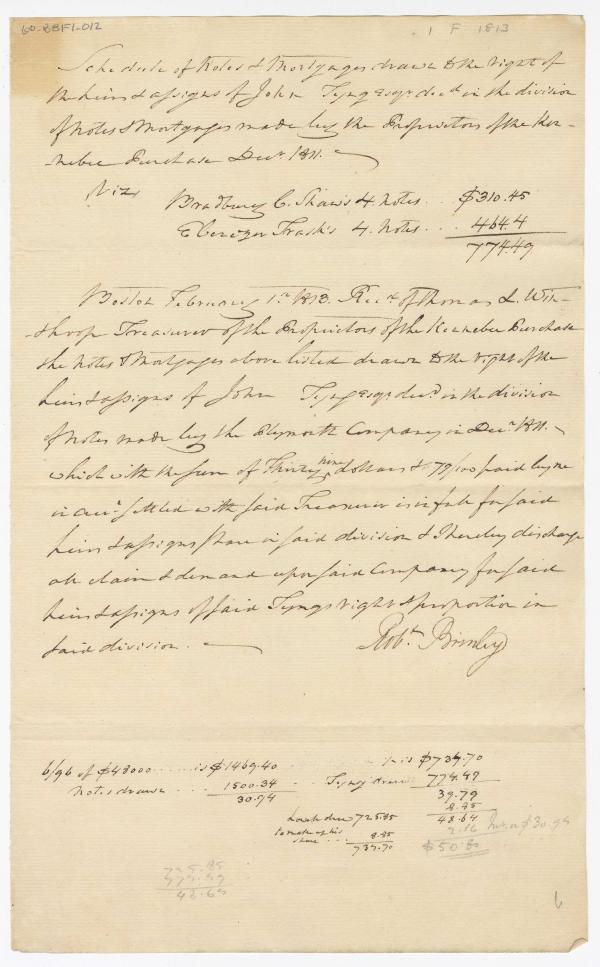 60-BBF1-012
1 F 1813
Schedule of Notes & Mortgages drawn to the right of
the heirs & assigns of John Tyng Esqr. decd. in the division
of Notes & Mortgages made by the Proprietors of the Ken-
-nebec Purchase Decr. 1811.
Viz
Bradbury C. Shaw's 4. Notes ... $310.45
Ebenezer Trask's 4. Notes ... 464.4
774.49
Boston February 1st. 1813. Recd. of Thomas L. Win-
-throp Treasurer of the Proprietors of the Kennebec Purchase
the Notes & Mortgages above listed drawn to the right of the
heirs & assigns of John Tyng Esqr. decd. in the division
of Notes made by the Plymouth Company in Decr. 1811.
which with the sum of Thirty nine dollars & 79/100 paid by me
in acct. settled with said Treasurer is in full for said
heirs & assigns share in said division & I hereby discharge
all claim & demand upon said Company for said
heirs & assigns of said Tyngs right & proportion in
said division.
Robt. Brinley
6/96 of $48000 ... is $1469.40
Notes drawn ... 1500.34
30.94
is $734.70
Tyng drew 774.49
39.79
8.85
48.64
$50.80
725.85
8.85
share ...
734.70
$30.94
725.85
774.49
48.64
6